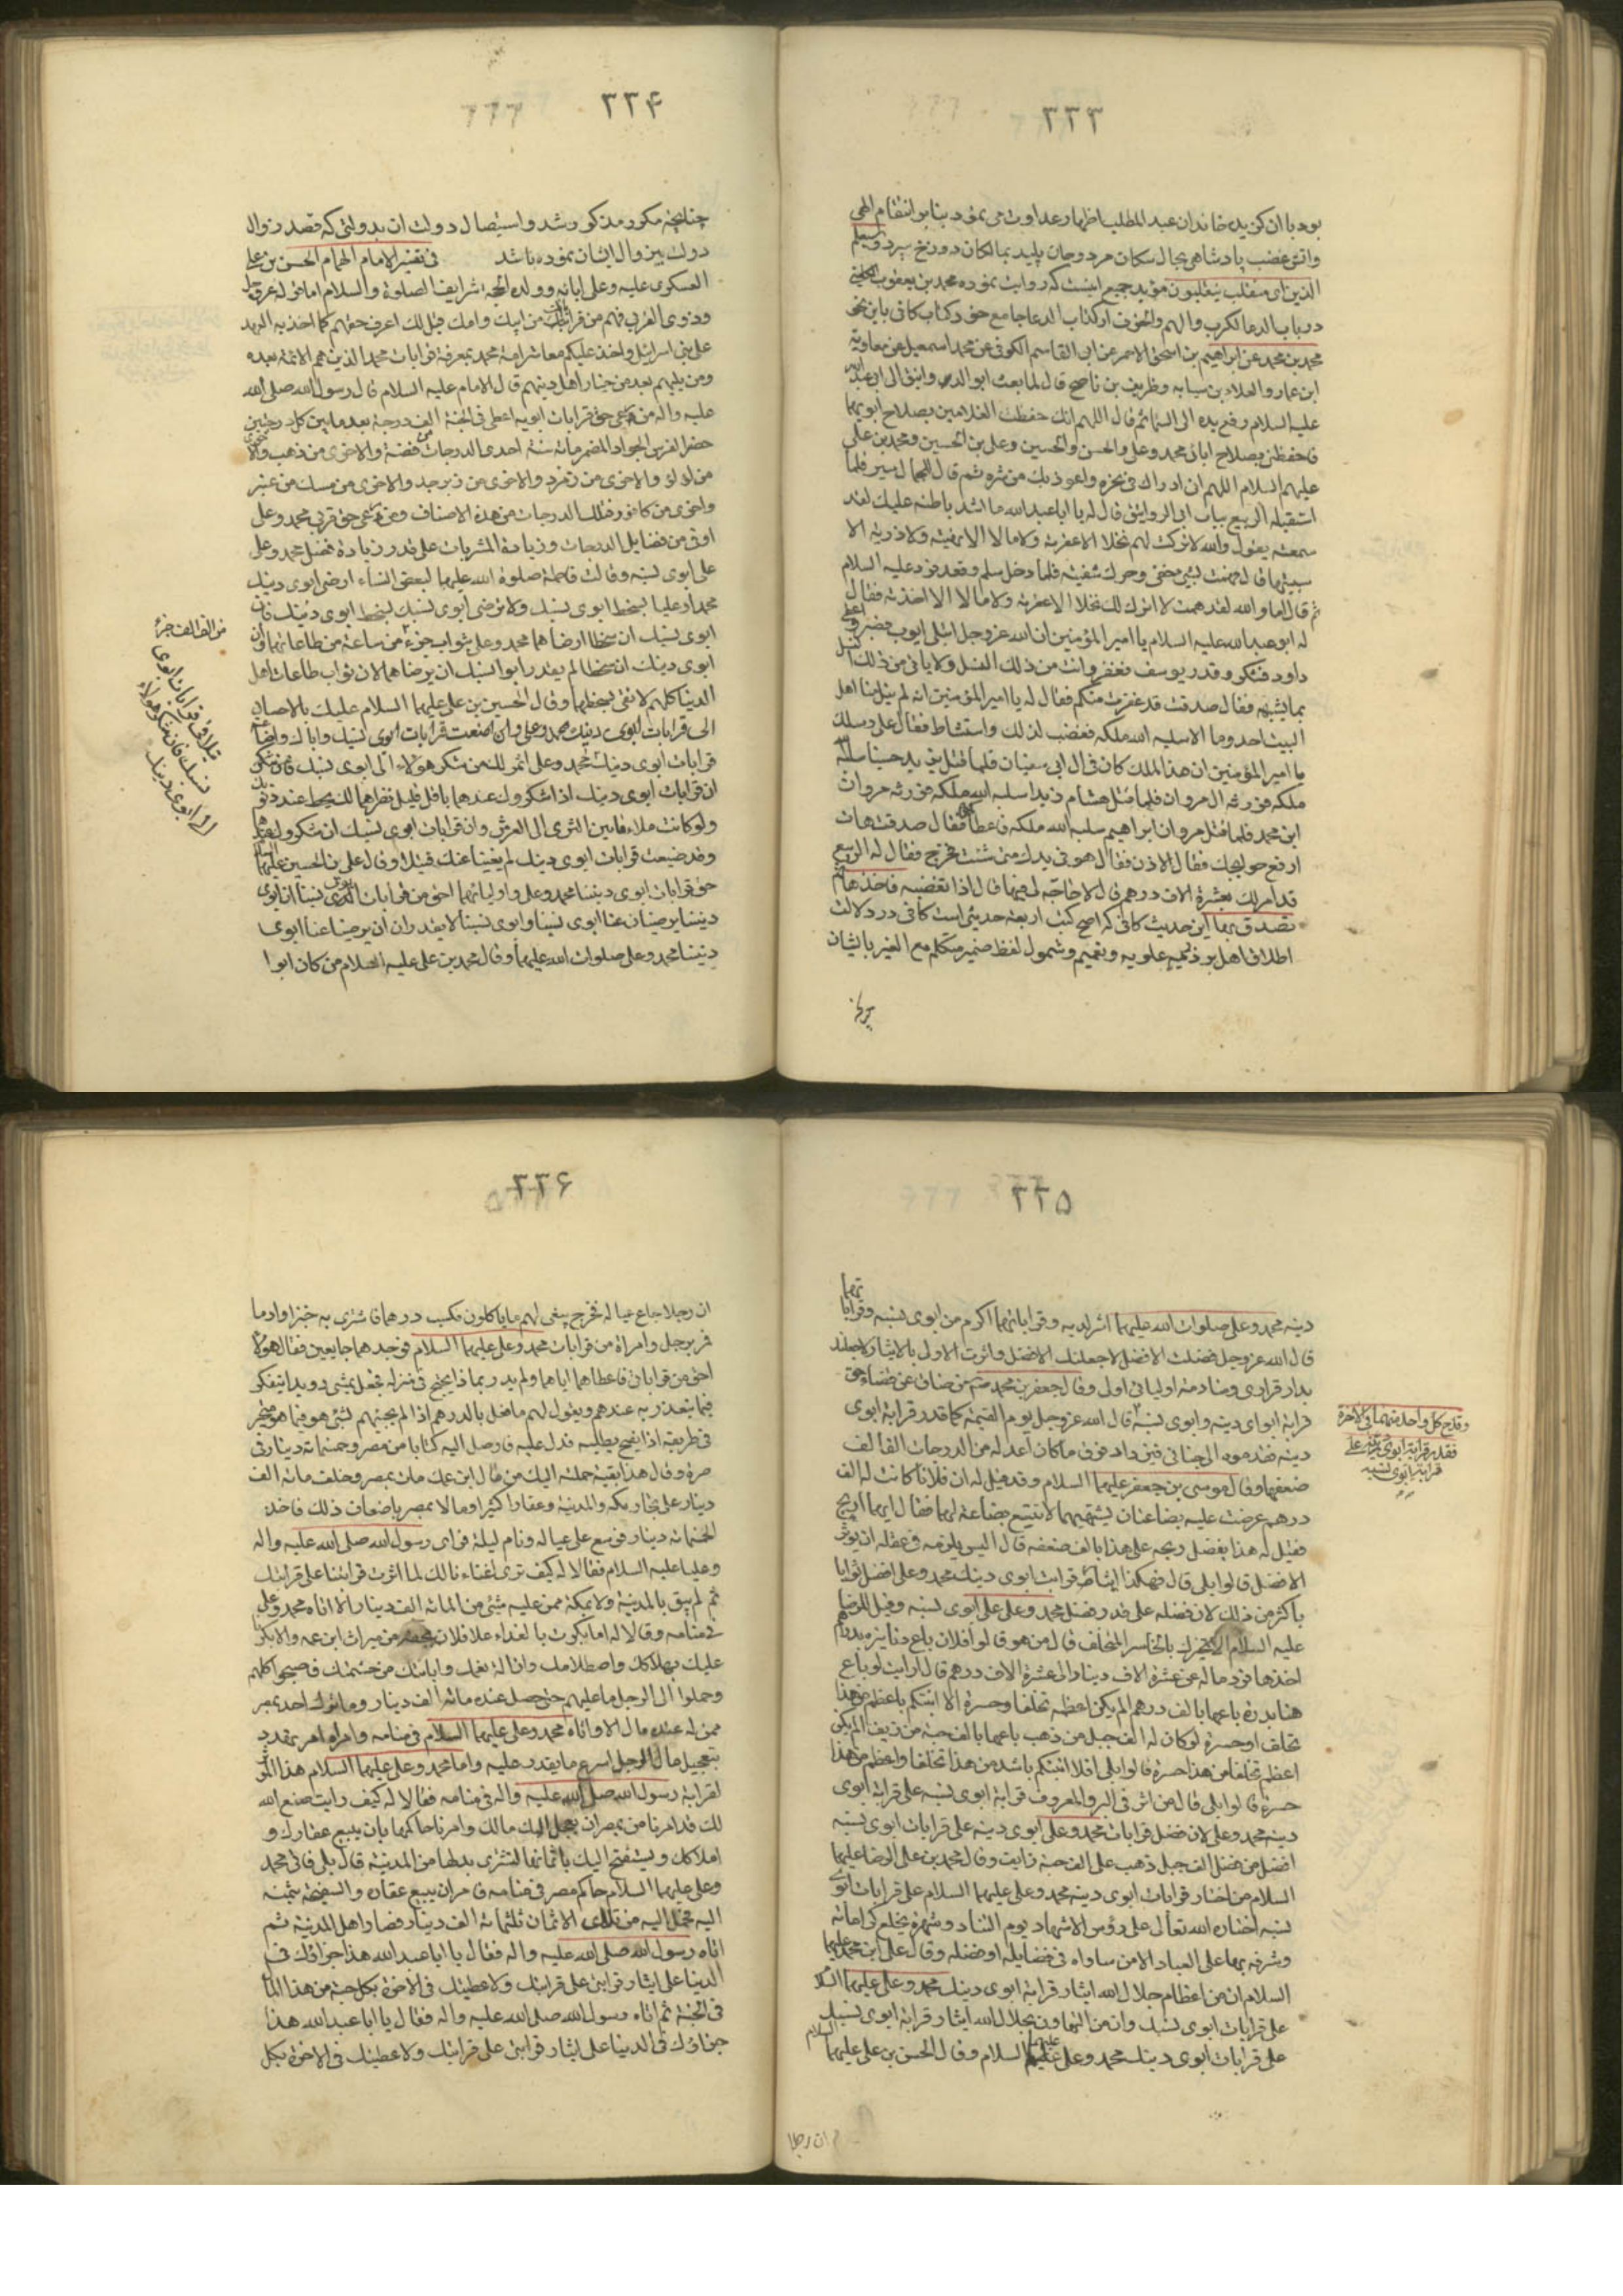 ٢٢٣
بود با ان كزيده خاندان عبد المطلب اظهار عداوت مى نمود بنا بر انتقام الهى
واتش غضب پادشاهى بحال سكان مرد وجان پليد بمالكان دوزخ سپرد وسيعلم
الذين اى منقلب ينقلبون مؤيد جميع اينست كه روايت نموده محمد بن يعقوب الكلينى
در باب الدعا للكرب والهم والخوف از كتاب الدعا جامع حق وكتاب كافى باين نحو
محمد بن محمد عن ابراهيم بن اسحق الاحمر عن ابى القاسم الكوفى عن محمد اسمعيل عن معاوية
ابن عمار والعلاء بن سيابه وظريف بن ناصح قال لما بعث ابو الدوانيق الى ابى عبد الله
عليه السلام رفع يده الى السمائم قال اللهم انك حفظت الغلامين بصلاح ابويهما
فاحفظنى بصلاح ابائى محمد وعلى والحسن والحسين وعلى بن الحسين ومحمد بن على
عليهم السلام اللهم ان ادراك فى نحره واعوذ بك من شره ثم قال للجمال سير فلما
استقبله الربيع بباب ابى الدوانيق قال له يا ابا عبد الله ما اشد باطنه عليك لقد
سمعته يقول والله لا تركت لهم نخلا الا عقرته ولا مالا الا نهبته ولا ذرية الا
سبيتها قال فهمت بشئ خفى وحرك شفتيه فلما دخل سلم وقعد فرد عليه السلام
ثم قال اما والله لقد هممت لا اترك لك نخلا الا عقرته ولا مالا الا اخذته فقال
له ابو عبد الله عليه السلام يا امير المؤمنين ان الله عز وجل ابتلى ايوب فصبر واعطى
داود فشكر وقدر يوسف فغفر وانت من ذلك النسل ولا ياتى من ذلك النسل
بما يشبهه فقال صدقت قد عفوت عنكم فقال له يا امير المؤمنين انه لم ينل منا اهل
البيت احد وما الا سلبه الله ملكه فغضب لذلك واستشاط فقال على رسلك
يا امير المؤمنين ان هذا الملك كان فى ال ابى سفيان فلما قتل يزيد حسينا سلبه الله
ملكه فورثه ال مروان فلما قتل هشام زيدا سلبه الله ملكه فورثه مروان
ابن محمد فلما قتل مروان ابراهيم سلبه الله ملكه فاعطاكموه فقال صدقت هات
ارفع حوايجك فقال الاذن فقال هو فى يدك متى شئت فخرج فقال له الربيع
قد امر لك بعشرة الاف درهم قال لا حاجة لى فيها قال اذا تغضبه فخذها ثم
تصدق بها اين حديث كافى كه اصح كتب اربعه حديثى است كافى در دلالت
اطلاق اهل بر ذريه علويه وتعميم وشمول لفظ ضمير متكلم مع الغير بايشان
٢٢۴
چنانچه مكرر مذكور شد واستيصال دولت ان بد ولتى كه قصد زوال
دولت بين وال ايشان نموده باشد فى تفسير الامام الهمام الحسن بن على
العسكرى عليه وعلى ابائه وولده الحجة شرايف الصلوة والسلام
وذوى القربى فهم من قراباتك من ابيك وامك قيل لك اعرف حقهم كما اخذ به العهد
على بنى اسرائيل واخذ عليكم معاشر امة محمد بمعرفة قرابات محمد الذين هم الائمة بعده
ومن يليهم بعد من خيار اهل دينهم قال الامام عليه السلام قال رسول الله صلى الله
عليه واله من رعى حق قرابات ابويه اعطى فى الجنة الف درجة بعد ما بين كل درجتين
حضر الفرس الجواد المضمر مائة سنة احدى الدرجات من فضة والاخرى من ذهب والاخرى
من لؤلؤ والاخرى من زمرد والاخرى من زبرجد والاخرى من مسك من عنبر
واخرى من كافور فتلك الدرجات من هذه الاصناف ومن رعى حق قربى محمد وعلى
اوتى من فضايل الدرجات وزيادة المثوبات على قدر زيادة فضل محمد وعلى
على ابوى نسبه وقالت فاطمة صلوة الله عليها لبعض النساء ارضى ابوى دينك
محمدا وعليا بسخط ابوى نسبك ولا ترضى ابوى نسبك بسخط ابوى دينك فان
ابوى نسبك ان سخطا ارضاهما محمد وعلى بثواب جزء من ساعة من طاعاتهما وان
ابوى دينك ان سخطا لم يقدر ابوا نسبك ان يرضاهما لان ثواب طاعات اهل
الدنيا كلهم لا تفى بسخطهما وقال الحسين بن على عليهما السلام عليك بالاحسان
الى قرابات ابوى دينك محمد وعلى وان اضعت قرابات ابوى نسبك واياك واضاعة
قرابات ابوى دينك محمد وعلى اثمر لك من شكر هؤلاء الى ابوى نسبك فان شكر
ان قرابات ابوى دينك اذا شكروك عندهما باقل قليل نظرهما لك يحط عنك ذنوبك
ولو كانت ملاء ما بين الثرى الى العرش وان قرابات ابوى نسبك ان شكروك عندهما
وقد ضيعت قرابات ابوى دينك لم يغنيا عنك فتيلا وقال على بن الحسين عليهما السلام
حق قرابات ابوى ديننا محمد وعلى واوليائهما احق من قرابات ابوى نسبنا ان ابوى
ديننا يرضيان عنا ابوى نسبنا وابوى نسبنا لا يقدران ان يرضيا عنا ابوى
ديننا محمد وعلى صلوات الله عليهما وقال محمد بن على عليه السلام من كان ابوا
من الف الف جزء
بتلافى قرابات ابوى
نسبك فان شكر هؤلاء
الى ابوى دينك
٢٢۵
دينه محمد وعلى صلوات الله عليهما اثر لديه وقراباتهما اكرم من ابوى نسبه وقراباتهما
قال الله عز وجل فضلت الافضل لاجعلنك الافضل واثرت الاولى بالايثار لاجعلنك
بدار قرارى ومنادمة اوليائى اولى وقال جعفر بن محمد من ضاق عن قضاء حق
قرابة ابواى دينه وابوى نسبه قال الله عز وجل يوم القيمة كما قدر قرابة ابوى
دينه فقدموه الى جنانى فيزداد فوق ما كان اعد له من الدرجات الف الف
ضعفها وقال موسى بن جعفر عليهما السلام وقد قيل له ان فلانا كانت له الف
درهم عرضت عليه بضاعتان يشتهيهما لا تتسع بضاعته لهما فقال ايهما اربح
فقيل له هذا يفضل ربحه على هذا بالف ضعفه قال اليس يلزمه فى عقله ان يؤثر
الافضل قالوا بلى قال فهكذا ايثار قرابت ابوى دينك محمد وعلى افضل ثوابا
باكثر من ذلك لان فضله على قدر فضل محمد وعلى على ابوى نسبه وقيل للرضا
عليه السلام الا نخبرك بالخاسر المتخلف قال من هو قالوا فلان باع دنانيره بدراهم
اخذها فرد ماله عن عشرة الاف دينار الى عشرة الاف درهم قال ارايت لو باع
هنا بدرة باعها بالف درهم الم يكن اعظم تخلفا وحسرة الا انبئكم باعظم من هذا
تخلف او حسرة لو كان له الف جبل من ذهب باعها بالف حبة من زيف الم يكن
اعظم تخلفا من هذا حسرة قالوا بلى افلا انبئكم باشد من هذا تخلفا واعظم من هذا
حسرة قالوا بلى قال من اثر فى البر والمعروف قرابة ابوى نسبه على قرابة ابوى
دينه محمد وعلى لان فضل قرابات محمد وعلى ابوى دينه على قرابات ابوى نسبه
افضل من فضل الف جبل ذهب على الف حبة زايف وقال محمد بن على الرضا عليهما
السلام من اختار قرابات ابوى دينه محمد وعلى عليهما السلام على قرابات ابوى
نسبه اختاره الله تعالى على رؤس الاشهاد يوم التناد وشهره بخلع كراماته
وشرفه بها على العباد الا من ساواه فى فضايله او فضله وقال على ابن محمد عليهما
السلام ان من اعظام جلال الله ايثار قرابة ابوى دينك محمد وعلى عليهما السلام
على قرابات ابوى نسبك وان من التهاون بجلال الله ايثار قرابة ابوى نسبك
على قرابات ابوى دينك محمد وعلى عليهما السلام وقال الحسن بن على عليهما السلام
وقدح كل واحد منهما فى الاخرة
فقدر قرابة ابوى دينه على
قرابة ابوى نسبه
ان رجلا
٢٢۶
ان رجلا جاع عياله فخرج يبغى لهم ما ياكلون فكسب درهما فاشترى به خبزا وادما
فمر برجل وامراة من قرابات محمد وعلى عليهما السلام فوجدهما جايعين فقال هؤلاء
احق من قراباتى فاعطاهما اياهما ولم يدر بماذا يحتج فى منزله فجعل يمشى رويدا يتفكر
فيما يعتذر به عندهم ويقول لهم ما فعل بالدرهم اذا لم يجئهم بشئ هو فيما هو متحير
فى طريقه اذا بفيج يطلبه فدل عليه فاوصل اليه كتابا من مصر وخمسمائة دينار فى
صرة وقال هذا بقية حملته اليك من مال ابن عمك مات بمصر وخلف مائة الف
دينار على تجار مكه والمدينة وعقارا كثيرا ومالا بمصر باضعاف ذلك فاخذ
الخمسمائة دينار فوسع على عياله ونام ليلة فراى رسول الله صلى الله عليه واله
وعليا عليه السلام فقالا له كيف ترى اغناءنا لك لما اثرت قرابتنا على قرابتك
ثم لم يبق بالمدينة ولا بمكة ممن عليه شئ من المائة الف دينار الا اتاه محمد وعلى
فى منامه وقالا له اما بكرت بالغداة على فلان بحقه من ميراث ابن عمه والا بكر
عليك بهلاكك واصطلامك وازالة نعمك وابانتك من حشمك فاصبحوا كلهم
وحملوا الى الرجل ما عليهم حتى حصل عنده مائة الف دينار وما ترك احد بمصر
ممن له عنده مال الا واتاه محمد وعلى عليهما السلام فى منامه وامراه امر تهدد
بتعجيل مال الرجل اسرع ما يقدر عليه واتا محمد وعلى عليهما السلام هذا المؤثر
لقرابة رسول الله صلى الله عليه واله فى منامه فقالا له كيف رايت صنع الله
لك قد امرنا من بمصر ان يعجل اليك مالك وامرنا حاكمها بان يبيع عقارك و
املاكك ويستفتح اليك باثمانها لتشترى بدلها من المدينة قال بلى فاتى محمد
وعلى عليهما السلام حاكم مصر فى منامه فامره ان يبيع عقاره والسفتجة بثمنه
اليه فحمل اليه من تلك الاثمان ثلثمائة الف دينار فصار اهل المدينة ثم
اتاه رسول الله صلى الله عليه واله فقال يا ابا عبد الله هذا جزاؤك فى
الدنيا على ايثار قرابتى على قرابتك ولاعطينك فى الاخرة بكل حبة من هذا المال
فى الجنة ثم اتاه رسول الله صلى الله عليه واله فقال يا ابا عبد الله هذا
جزاؤك فى الدنيا على ايثار قرابتى على قرابتك ولاعطينك فى الاخرة بكل